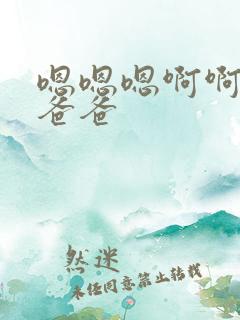 嗯嗯嗯啊啊
爸爸
然迷
未经同意禁止转载